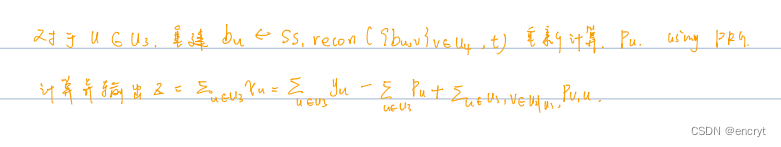 对于 u ∈ U₃, 重建 b_u ← SS.recon({b_{u,v}}_{v∈U₄}, t) 重新计算 p_u. using PRG.
计算并输出 z = Σ_{u∈U₃} x_u = Σ_{u∈U₃} y_u − Σ_{u∈U₃} p_u + Σ_{u∈U₃, v∈U₂\U₃} p_{v,u}.
CSDN @encryt